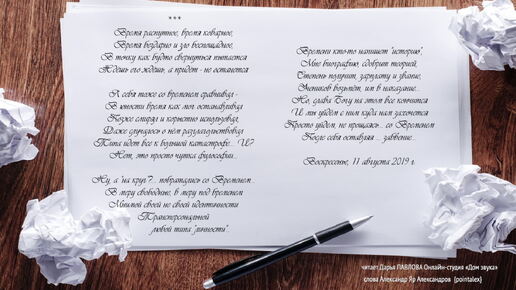 ***
Время распутное, время коварное,
Время бездарно и зло беспощадное,
В точку как будто свернуться пытается
Ждешь его ждешь, а придет - не останется
Я себя тоже со временем сравнивал -
В юности время как мог останавливал
Позже спирал и корыстно использовал,
Даже случалось о нём разглагольствовал
Типа идет все к большой катастрофе... И?
Нет, это просто чутка философии...
Ну, а "на круг"?... побратались со Временем...
В меру свободные, в меру под бременем
Мнимой своей не своей идентичности
Трансперсональной
любой типа "личности".
Времени кто-то напишет "историю",
Мне биографию, сдобрит теорией,
Степень получит, зарплату и звание,
Учеников возьмёт, им в наказание...
Но, слава Богу на этом все кончится
И мы уйдём с ним куда нам захочется
Просто уйдем, не прощаясь... со Временем
После себя оставляя ... забвение...
Воскресенье, 11 августа 2019 г.
читает Дарья ПАВЛОВА Онлайн-студия «Дом звука»
слова Александр Яр Александров (pointalex)